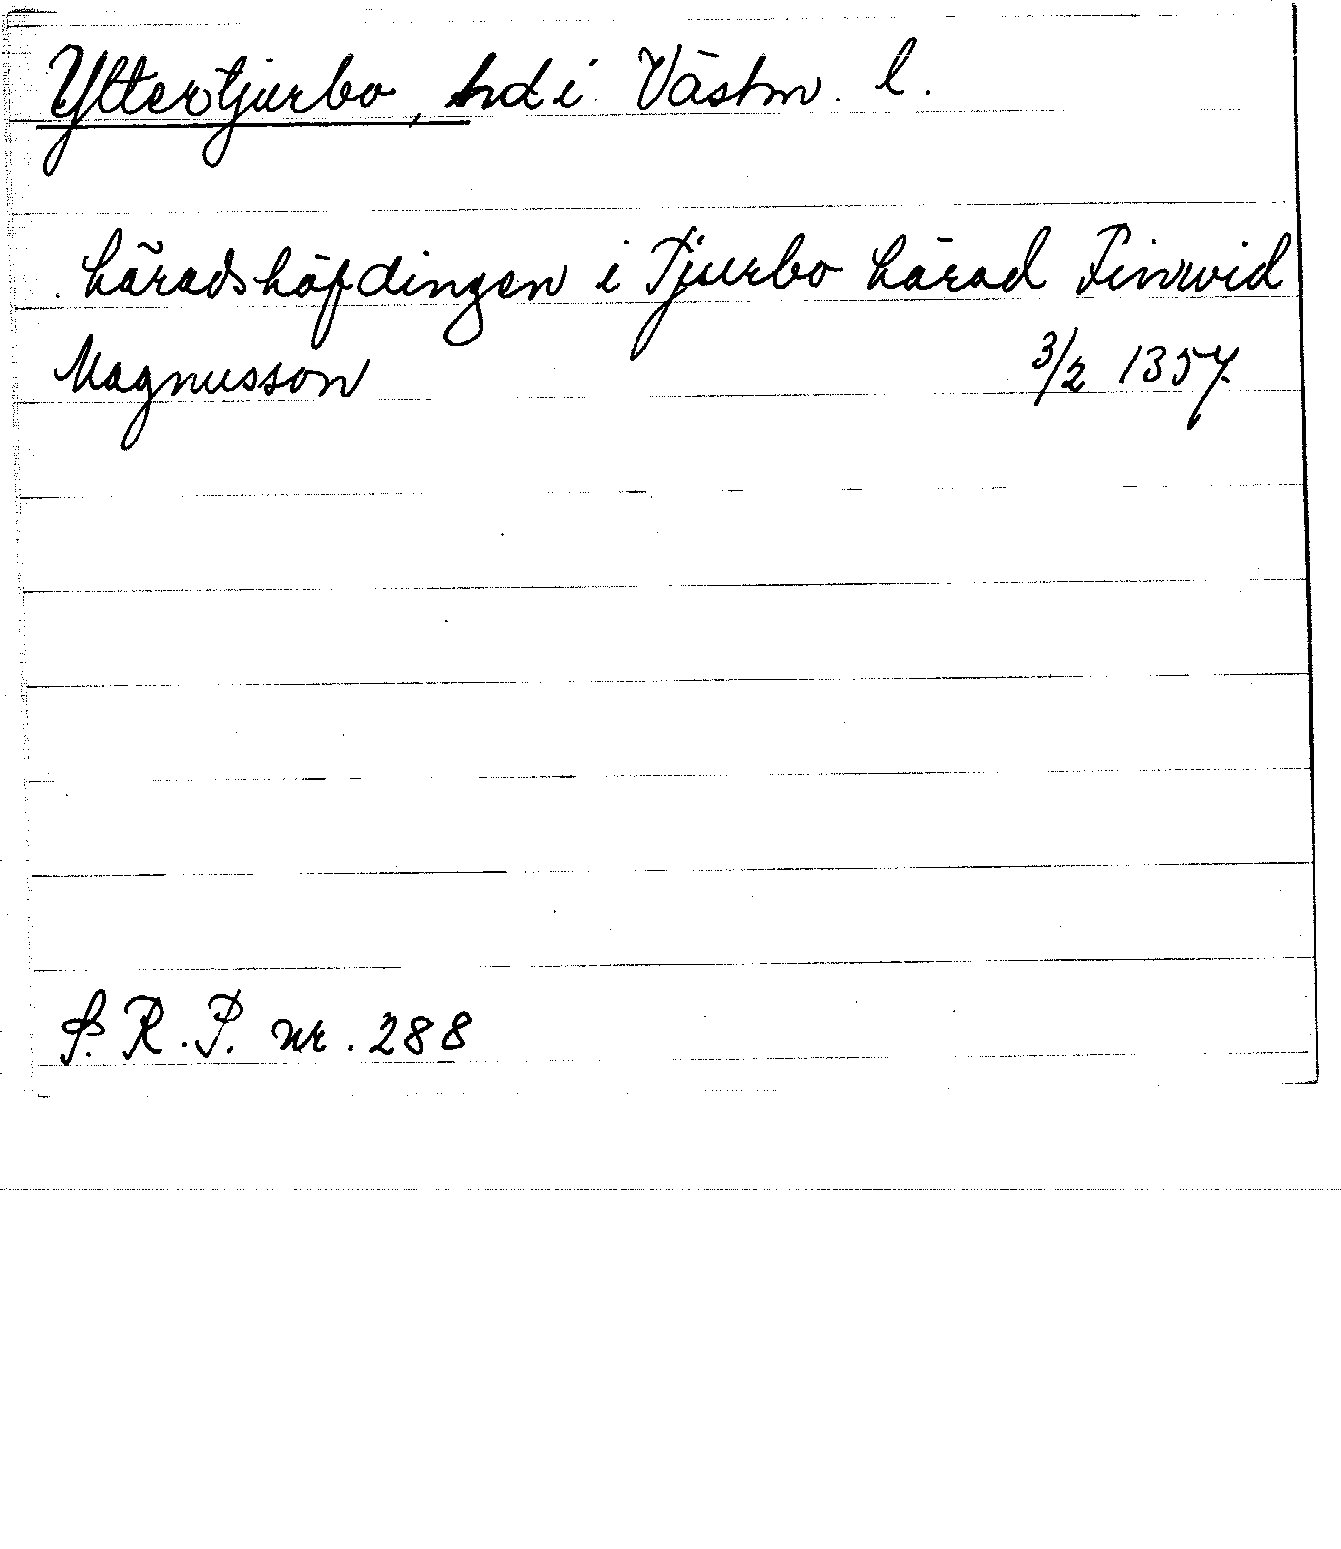 Yttertjurbo, hd i Västm. l.
häradshöfdingen i Tjurbo härad Finvid
Magnusson 3/2 1357.
S. R. P. nr. 288